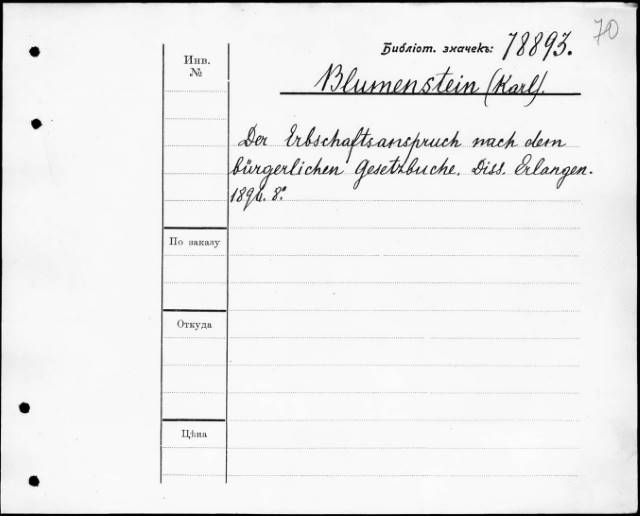 70
Библіот. значекъ: 78893.
Инв.
№
Blumenstein (Karl).
Der Erbschaftsanspruch nach dem
bürgerlichen Gesetzbuche. Diss. Erlangen.
8º
По заказу
Откуда
Цѣна